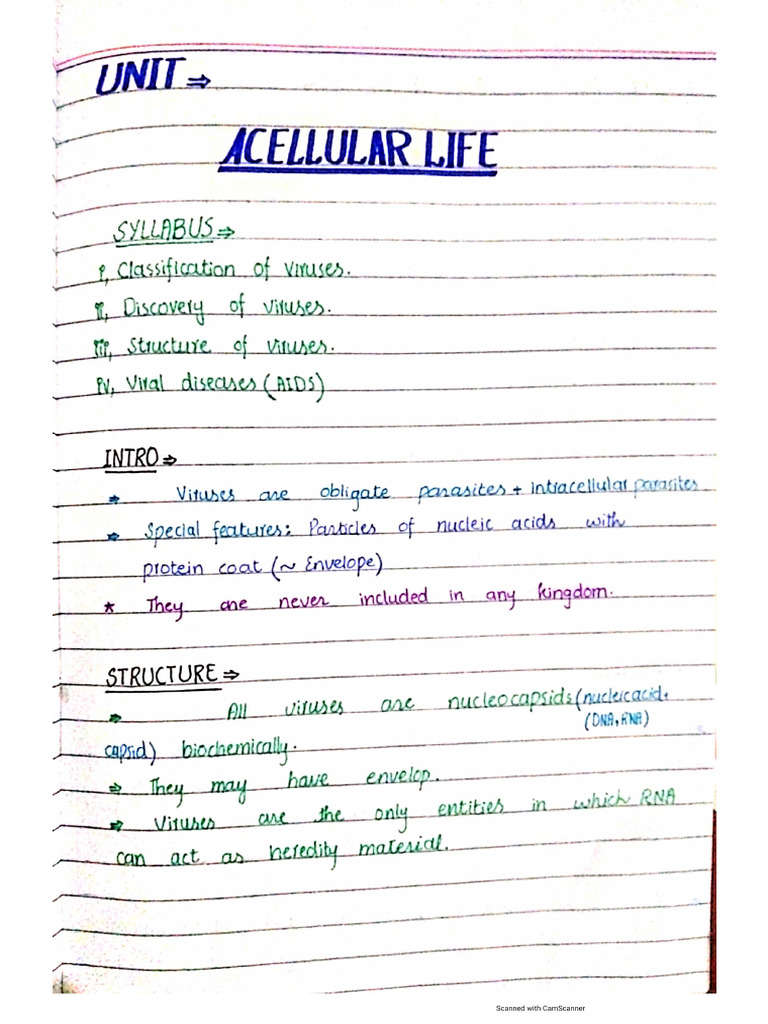 UNIT ⇒
ACELLULAR LIFE
SYLLABUS ⇒
i, Classification of viruses.
ii, Discovery of viruses.
iii, Structure of viruses.
iv, Viral diseases (AIDS)
INTRO ⇒
⇒ Viruses are obligate parasites + intracellular parasites
⇒ Special features: Particles of nucleic acids with
protein coat (~ Envelope)
* They are never included in any kingdom.
STRUCTURE ⇒
⇒ All viruses are nucleocapsids (nucleic acid +
(DNA, RNA)
capsid) biochemically.
⇒ They may have envelop.
⇒ Viruses are the only entities in which RNA
can act as heredity material.
Scanned with CamScanner